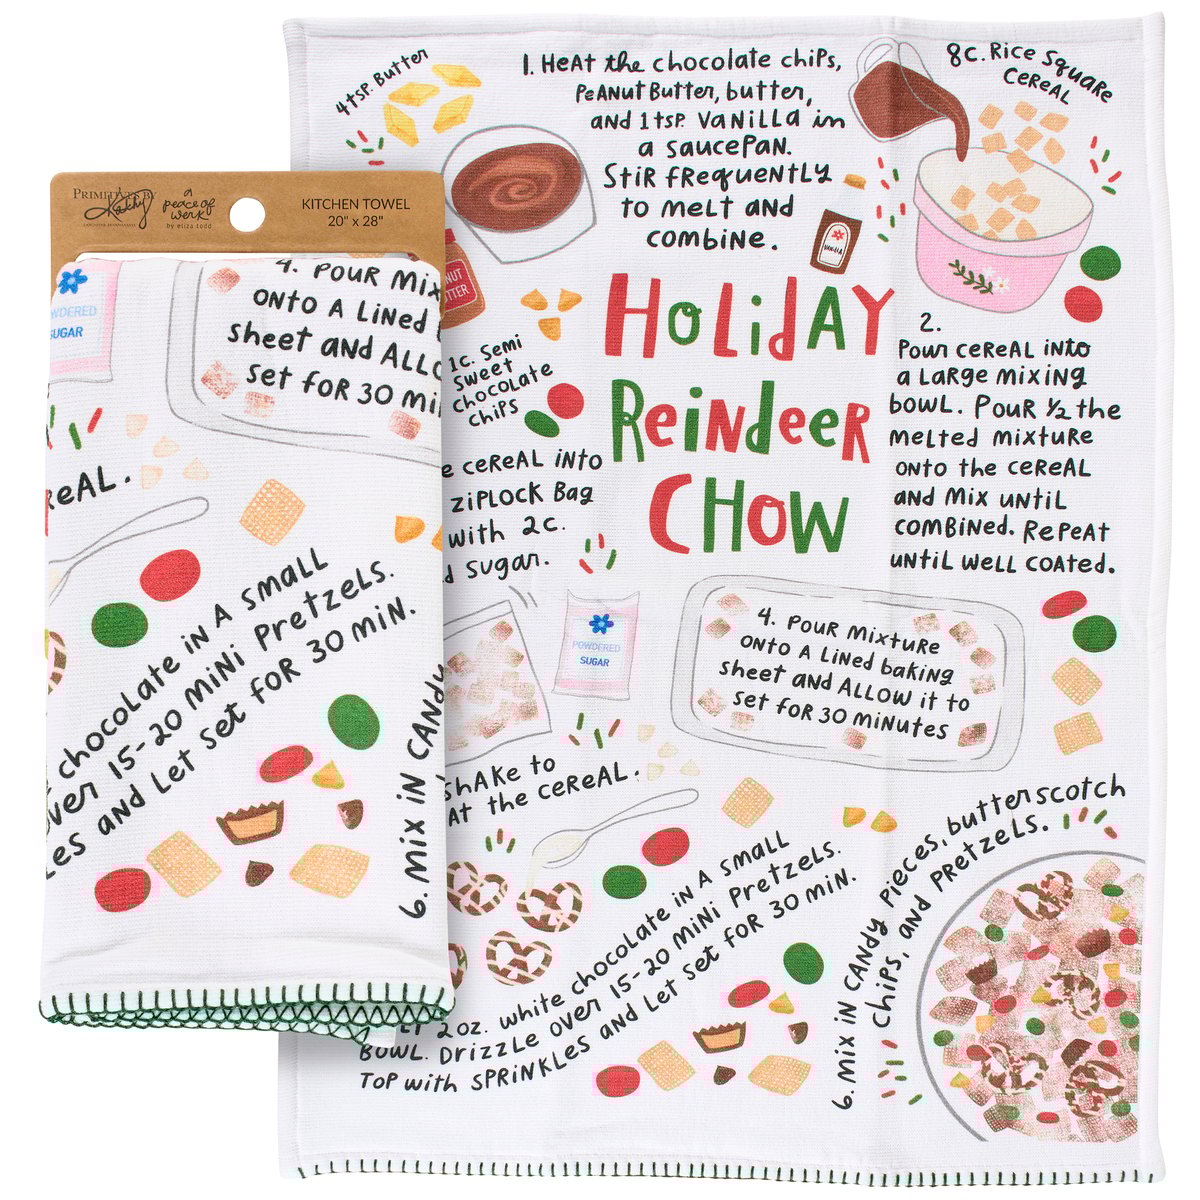 PRIMITIVES BY
Kathy
a
peace of
work
by eliza todd
KITCHEN TOWEL
20" x 28"
POWDERED
SUGAR
4. POUR Mix
ONTO A LiNed
sheet AND ALLO
SeT foR 30 Mi
ReAL.
chocolate iN A SMALL
over 15-20 MiNi PReTzeLs.
Les AND LeT SeT foR 30 MiN.
6. Mix iN CANdy
4 tSP. Butter
1. HeAT the chocolate chiPs,
PeANut Butter, butter,
AND 1 tSP. VANiLLa in
a SaucePAN.
StiR fRequeNtLY
to MeLt AND
combiNe.
8 C. Rice Square
CeReAL
VANILLA
NUT
TTER
HoLidAY
ReiNdeeR
CHOW
1c. Semi
Sweet
Chocolate
Chips
2.
Pour ceReAL iNto
a LaRge MixiNg
bowL. PouR ½ the
MeLted MixtuRe
oNto the ceReAL
and Mix uNtiL
coMbiNed. RePeAt
uNtiL weLL coAted.
e ceReAL iNto
ziPLock BAg
with 2c.
d Sugar.
POWDERED
SUGAR
ShAKe to
At the ceReAL.
4. PouR MixtuRe
oNto A LiNed bakiNg
sheet aNd ALLOW it to
Set foR 30 MiNutes
2 oz. white chocolate iN A SMALL
BOWL. DRizzLe oveR 15-20 MiNi PRetzeLs.
ToP with SPRiNkLes aNd Let Set foR 30 MiN.
6. Mix iN CANdy Pieces, butterscotch
Chips, aNd PRetzeLs.